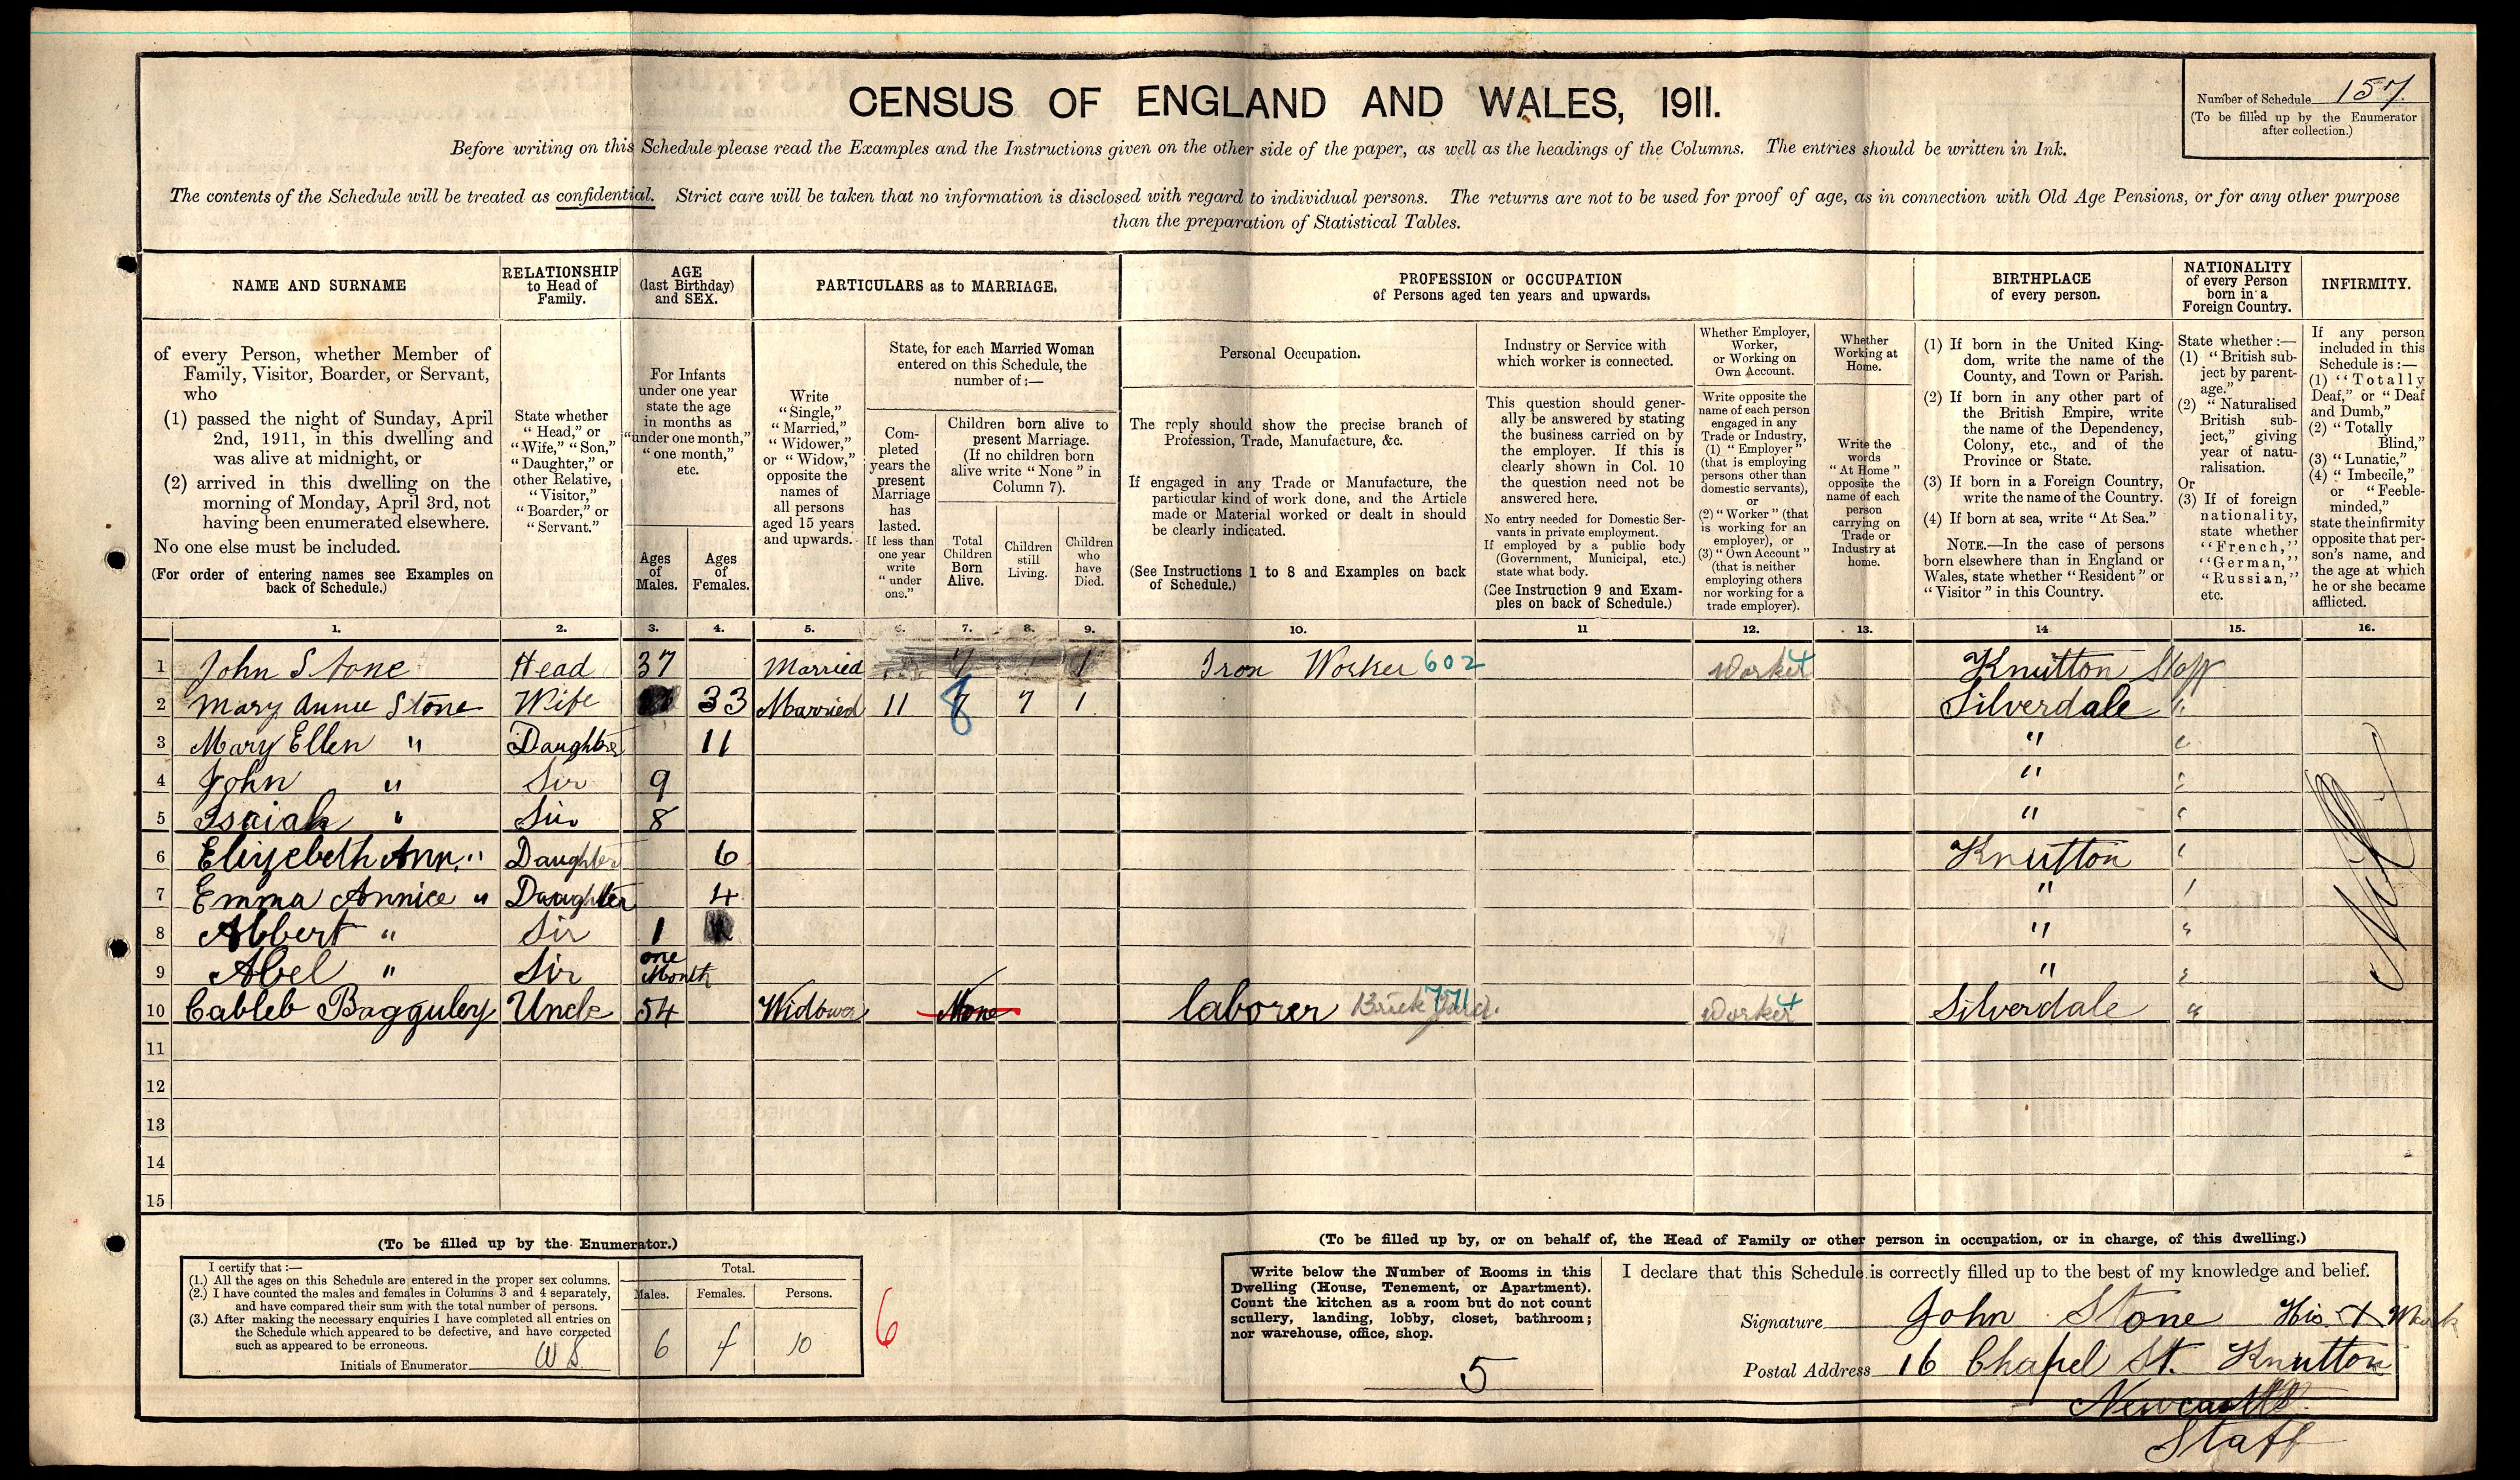 CENSUS OF ENGLAND AND WALES, 1911.
Number of Schedule 157.
(To be filled up by the Enumerator
after collection.)
Before writing on this Schedule please read the Examples and the Instructions given on the other side of the paper, as well as the headings of the Columns. The entries should be written in Ink.
The contents of the Schedule will be treated as confidential. Strict care will be taken that no information is disclosed with regard to individual persons. The returns are not to be used for proof of age, as in connection with Old Age Pensions, or for any other purpose
than the preparation of Statistical Tables.
NAME AND SURNAME
of every Person, whether Member of
Family, Visitor, Boarder, or Servant,
who
(1) passed the night of Sunday, April
2nd, 1911, in this dwelling and
was alive at midnight, or
(2) arrived in this dwelling on the
morning of Monday, April 3rd, not
having been enumerated elsewhere.
No one else must be included.
(For order of entering names see Examples on
back of Schedule.)
RELATIONSHIP
to Head of
Family.
State whether
"Head," or
"Wife," "Son,"
"Daughter," or
other Relative,
"Visitor,"
"Boarder," or
"Servant."
AGE
(last Birthday)
and SEX.
For Infants
under one year
state the age
in months as
"under one month,"
"one month,"
etc.
Ages
of
Males.
Ages
of
Females.
PARTICULARS as to MARRIAGE.
Write
"Single,"
"Married,"
"Widower,"
or "Widow,"
opposite the
names of
all persons
aged 15 years
and upwards.
State, for each Married Woman
entered on this Schedule, the
number of:—
Com-
pleted
years the
present
Marriage
has
lasted.
If less than
one year
write
"under
one."
Children born alive to
present Marriage.
(If no children born
alive write "None" in
Column 7).
Total
Children
Born
Alive.
Children
still
Living.
Children
who
have
Died.
PROFESSION or OCCUPATION
of Persons aged ten years and upwards.
Personal Occupation.
The reply should show the precise branch of
Profession, Trade, Manufacture, &c.
If engaged in any Trade or Manufacture, the
particular kind of work done, and the Article
made or Material worked or dealt in should
be clearly indicated.
(See Instructions 1 to 8 and Examples on back
of Schedule.)
Industry or Service with
which worker is connected.
This question should gener-
ally be answered by stating
the business carried on by
the employer. If this is
clearly shown in Col. 10
the question need not be
answered here.
No entry needed for Domestic Ser-
vants in private employment.
If employed by a public body
(Government, Municipal, etc.)
state what body.
(See Instruction 9 and Exam-
ples on back of Schedule.)
Whether Employer,
Worker,
or Working on
Own Account.
Write opposite the
name of each person
engaged in any
Trade or Industry,
(1) "Employer"
(that is employing
persons other than
domestic servants),
or
(2) "Worker" (that
is working for an
employer), or
(3) "Own Account"
(that is neither
employing others
nor working for a
trade employer).
Whether
Working at
Home.
Write the
words
"At Home"
opposite the
name of each
person
carrying on
Trade or
Industry at
home.
BIRTHPLACE
of every person.
(1) If born in the United King-
dom, write the name of the
County, and Town or Parish.
(2) If born in any other part of
the British Empire, write
the name of the Dependency,
Colony, etc., and of the
Province or State.
(3) If born in a Foreign Country,
write the name of the Country.
(4) If born at sea, write "At Sea."
NOTE.—In the case of persons
born elsewhere than in England or
Wales, state whether "Resident" or
"Visitor" in this Country.
NATIONALITY
of every Person
born in a
Foreign Country.
State whether:—
(1) "British sub-
ject by parent-
age."
(2) "Naturalised
British sub-
ject," giving
year of natu-
ralisation.
Or
(3) If of foreign
nationality,
state whether
"French,"
"German,"
"Russian,"
etc.
INFIRMITY.
If any person
included in this
Schedule is:—
(1) "Totally
Deaf," or "Deaf
and Dumb,"
(2) "Totally
Blind,"
(3) "Lunatic,"
(4) "Imbecile,"
or "Feeble-
minded,"
state the infirmity
opposite that per-
son's name, and
the age at which
he or she became
afflicted.
1. 2. 3. 4. 5. 6. 7. 8. 9. 10. 11 12. 13. 14 15. 16.
1 John Stone Head 37 Married 7 1 Iron Worker 602 Worker 4 Knutton Staff
2 Mary Annie Stone Wife 33 Married 11 7 8 7 1 Silverdale "
3 Mary Ellen " Daughter 11 " "
4 John " Son 9 " "
5 Isaiah " Son 8 " "
6 Elizebeth Ann " Daughter 6 Knutton "
7 Emma Annice " Daughter 4 " "
8 Albert " Son 1 " "
9 Abel " Son one Month " "
10 Cableb Bagguley Uncle 54 Widower None laborer Brick Yard. 771 Worker 4 Silverdale "
11
12
13
14
15
(To be filled up by the Enumerator.)
I certify that:—
(1.) All the ages on this Schedule are entered in the proper sex columns.
(2.) I have counted the males and females in Columns 3 and 4 separately,
and have compared their sum with the total number of persons.
(3.) After making the necessary enquiries I have completed all entries on
the Schedule which appeared to be defective, and have corrected
such as appeared to be erroneous.
Initials of Enumerator WS
Total.
Males. Females. Persons.
6 4 10
6
(To be filled up by, or on behalf of, the Head of Family or other person in occupation, or in charge, of this dwelling.)
Write below the Number of Rooms in this
Dwelling (House, Tenement, or Apartment).
Count the kitchen as a room but do not count
scullery, landing, lobby, closet, bathroom;
nor warehouse, office, shop.
5
I declare that this Schedule is correctly filled up to the best of my knowledge and belief.
Signature John Stone His X Mark
Postal Address 16 Chapel St. Knutton
Newcastle
Staff